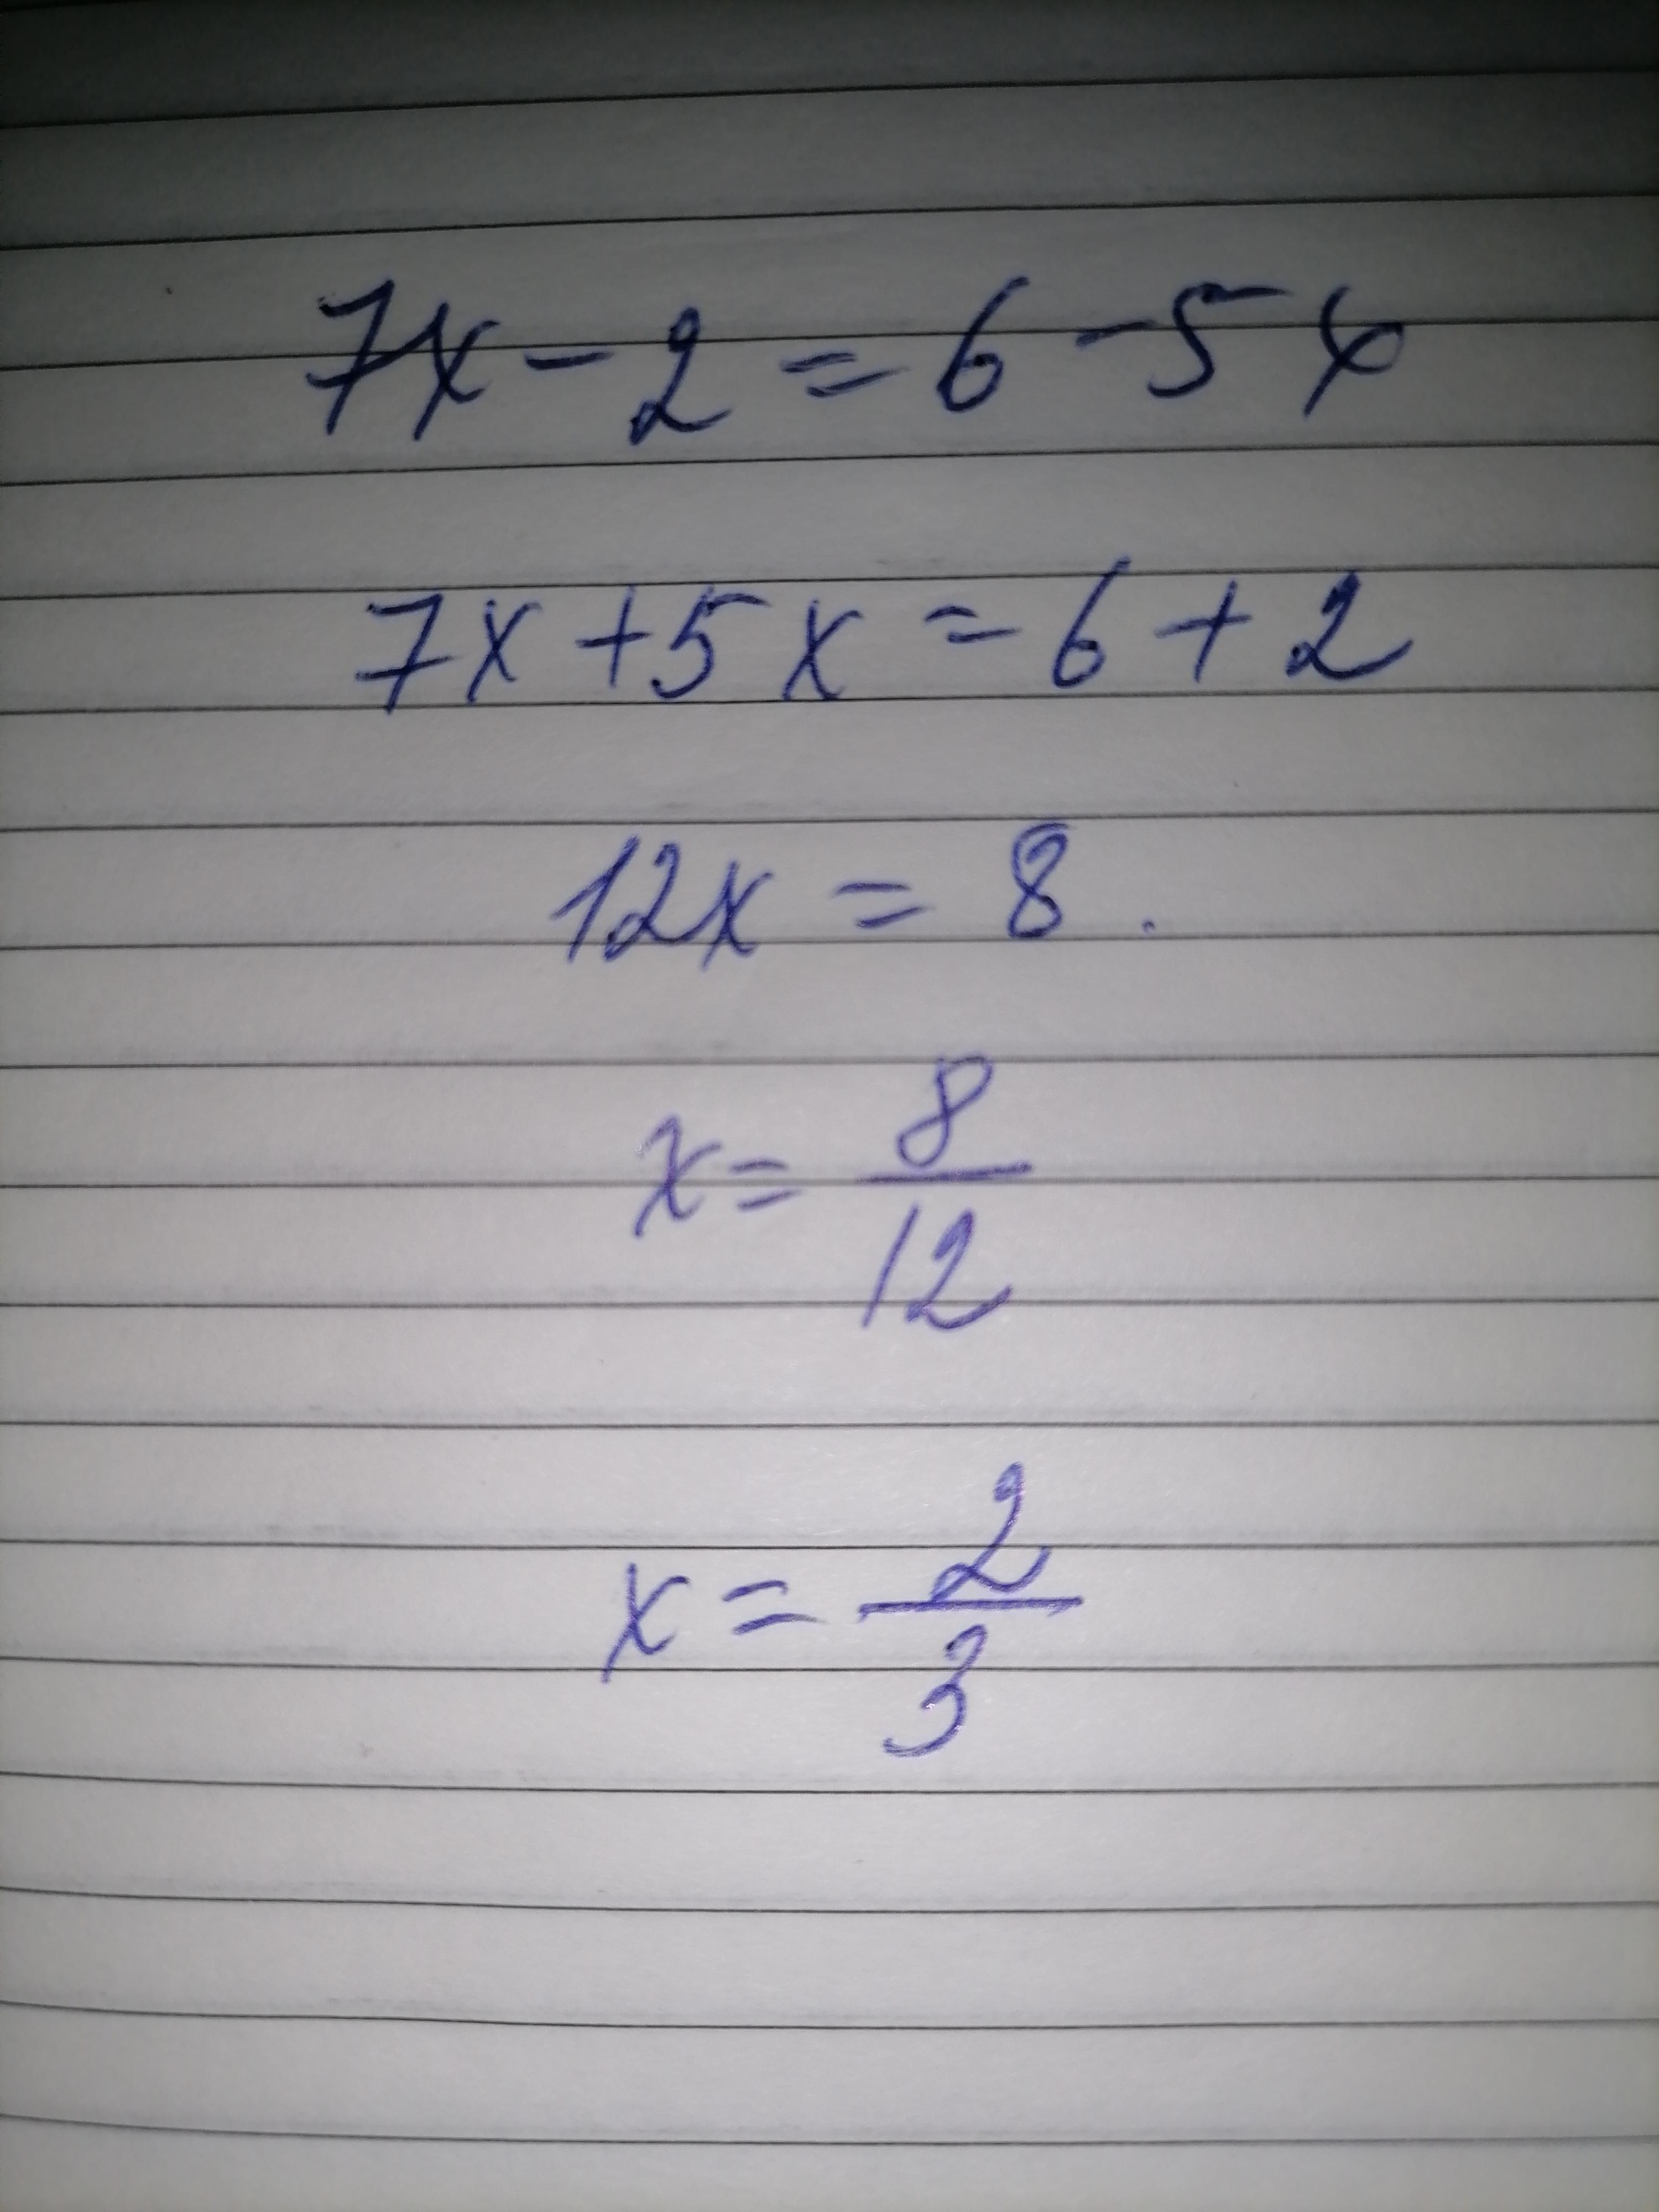 7x - 2 = 6 - 5x
7x + 5x = 6 + 2
12x = 8.
x = 8/12
x = 2/3